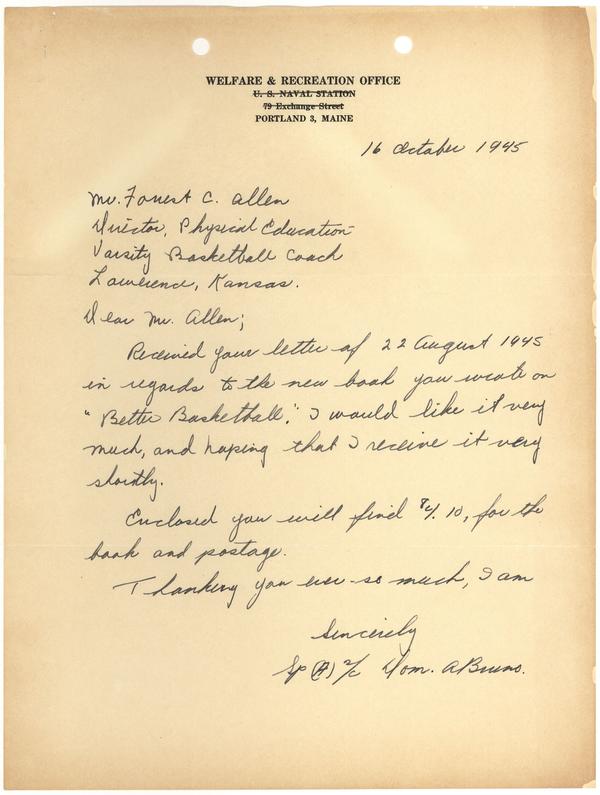 WELFARE & RECREATION OFFICE
U. S. NAVAL STATION
79 Exchange Street
PORTLAND 3, MAINE
16 October 1945
Mr. Forrest C. Allen
Director, Physical Education
Varsity Basketball Coach
Lawerence, Kansas.
Dear Mr. Allen;
Received your letter of 22 August 1945
in regards to the new book you wrote on
"Better Basketball." I would like it very
much, and hoping that I receive it very
shortly.
Enclosed you will find $4.10, for the
book and postage.
Thanking you ever-so much, I am
Sincerely
Sp (A) 2/c Dom. A Bruno.